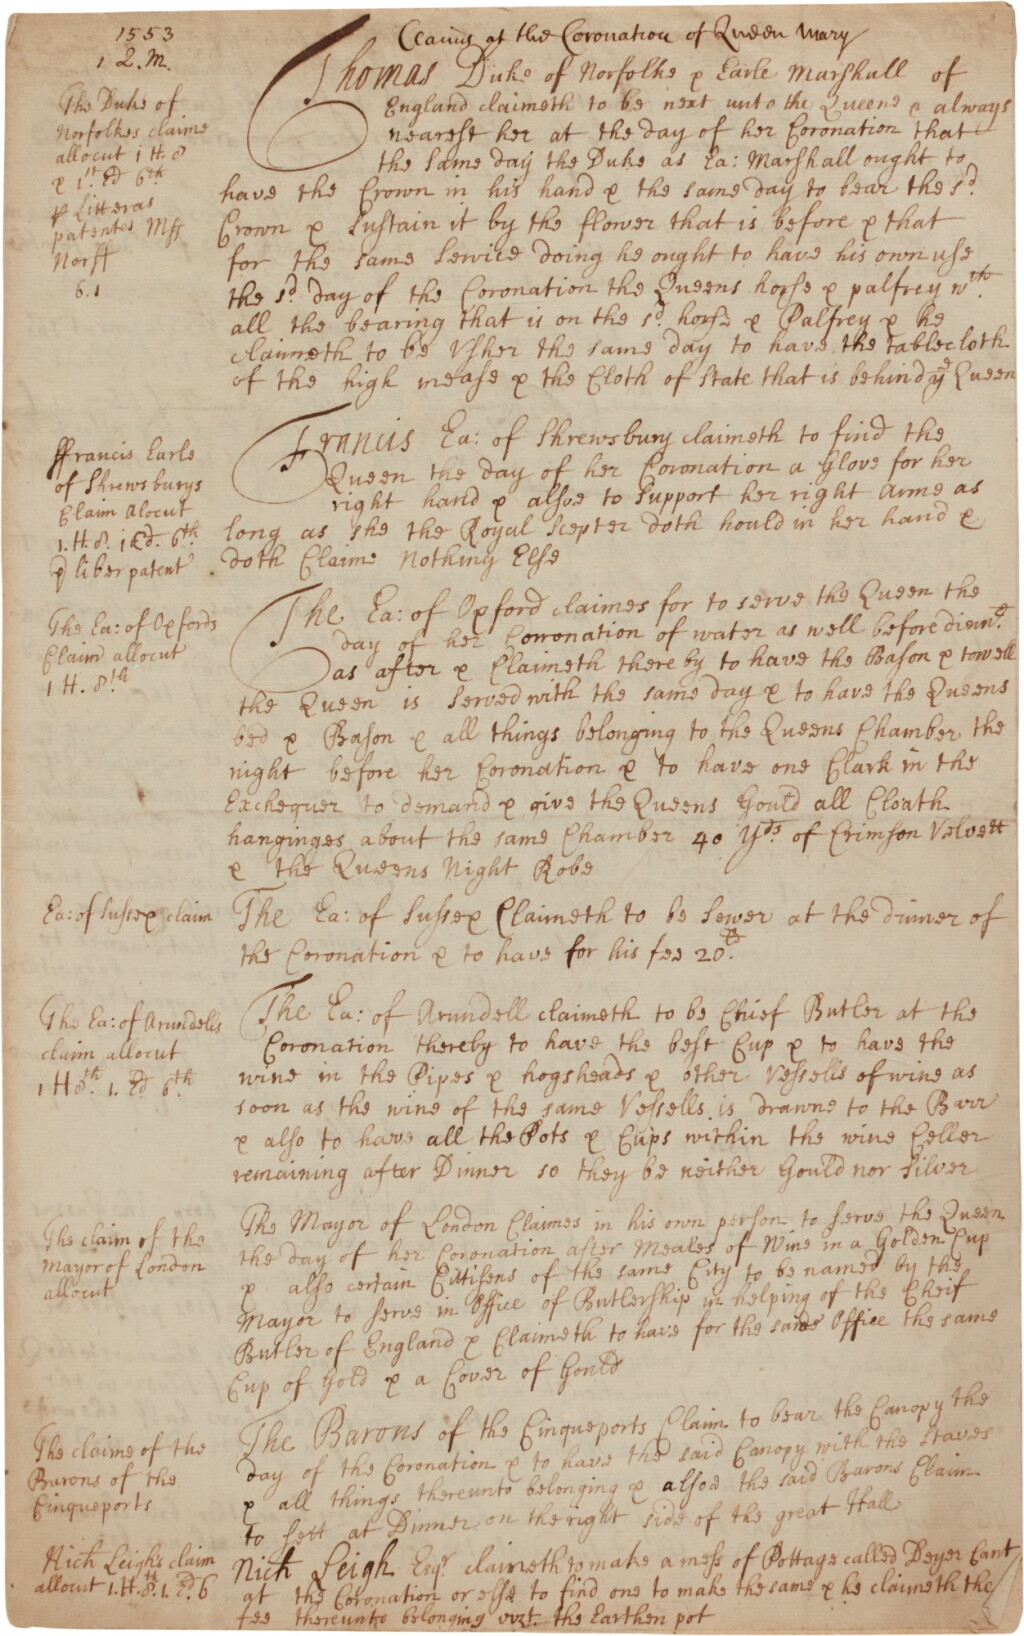 1553
1 Q. M.
Claims at the Coronation of Queen Mary
The Duke of
Norfolkes claime
allocut 1 H. 8
& 1st Ed 6th
p Litteras
patentes Mss
Norff
6.1
Thomas Duke of Norfolke & Earle Marshall of
England claimeth to be next unto the Queene & always
nearest her at the day of her Coronation that
the same day the Duke as Ea: Marshall ought to
have the Crown in his hand & the same day to bear the sd.
Crown & sustain it by the flower that is before & that
for the same Service doing he ought to have his own use
the sd. day of the Coronation the Queens horse & palfrey wth.
all the bearing that is on the sd. horse & Palfrey & he
claimeth to be Usher the same day to have the tablecloth
of the high mease & the Cloth of State that is behind ye Queen
ffrancis Earle
of Shrewsburys
Claim alocut
1. H. 8. 1 Ed. 6th.
p liber patent
Francis Ea: of Shrewsbury claimeth to find the
Queen the day of her Coronation a Glove for her
right hand & alsoe to Support her right Arme as
long as she the Royal Scepter doth hould in her hand &
doth Claime Nothing Else
The Ea: of Oxfords
Claim allocut
1 H. 8th
The Ea: of Oxford claimes for to serve the Queen the
day of her Coronation of water as well before dinnr.
as after & Claimeth thereby to have the Bason & towell
the Queen is Served with the same day & to have the Queens
bed & Bason & all things belonging to the Queens Chamber the
night before her Coronation & to have one Clark in the
Exchequer to demand & give the Queens Gould all Cloath
hanginges about the same Chamber 40 Yds. of Crimson Velvett
& the Queens Night Robe
Ea: of Sussex claim
The Ea: of Sussex Claimeth to be Sewer at the dinner of
the Coronation & to have for his fee 20
The Ea: of Arundells
claim allocut
1 H 8th. 1. Ed 6th.
The Ea: of Arundell claimeth to be Chief Butler at the
Coronation thereby to have the best Cup & to have the
wine in the Pipes & hogsheads & other Vessells of wine as
soon as the wine of the same Vessells is drawne to the Barr
& also to have all the Pots & Cups within the wine Celler
remaining after Dinner so they be neither Gould nor Silver
The claim of the
mayor of London
allocut
The Mayor of London Claimes in his own person to serve the Queen
the day of her Coronation after Meales of Wine in a Golden Cup
& also certain Cittisens of the same City to be named by the
Mayor to serve in Office of Butlership in helping of the Cheif
Butler of England & Claimeth to have for the saide Office the same
Cup of Gold & a Cover of Gould
The claime of the
Barons of the
Cinqueports
The Barons of the Cinqueports Claim to bear the Canopy the
day of the Coronation & to have the said Canopy with the Staves
& all things thereunto belonging & alsoe the said Barons Claim
to sett at Dinner on the right side of the great Hall
Nich Leighs claim
allocut 1. H. 8. 1. Ed. 6
Nich Leigh Esqr. claimeth to make a mess of Pottage called Deyer Cant
at the Coronation or else to find one to make the same & he claimeth the
fee thereunto belonging vizt. the Earthen pot